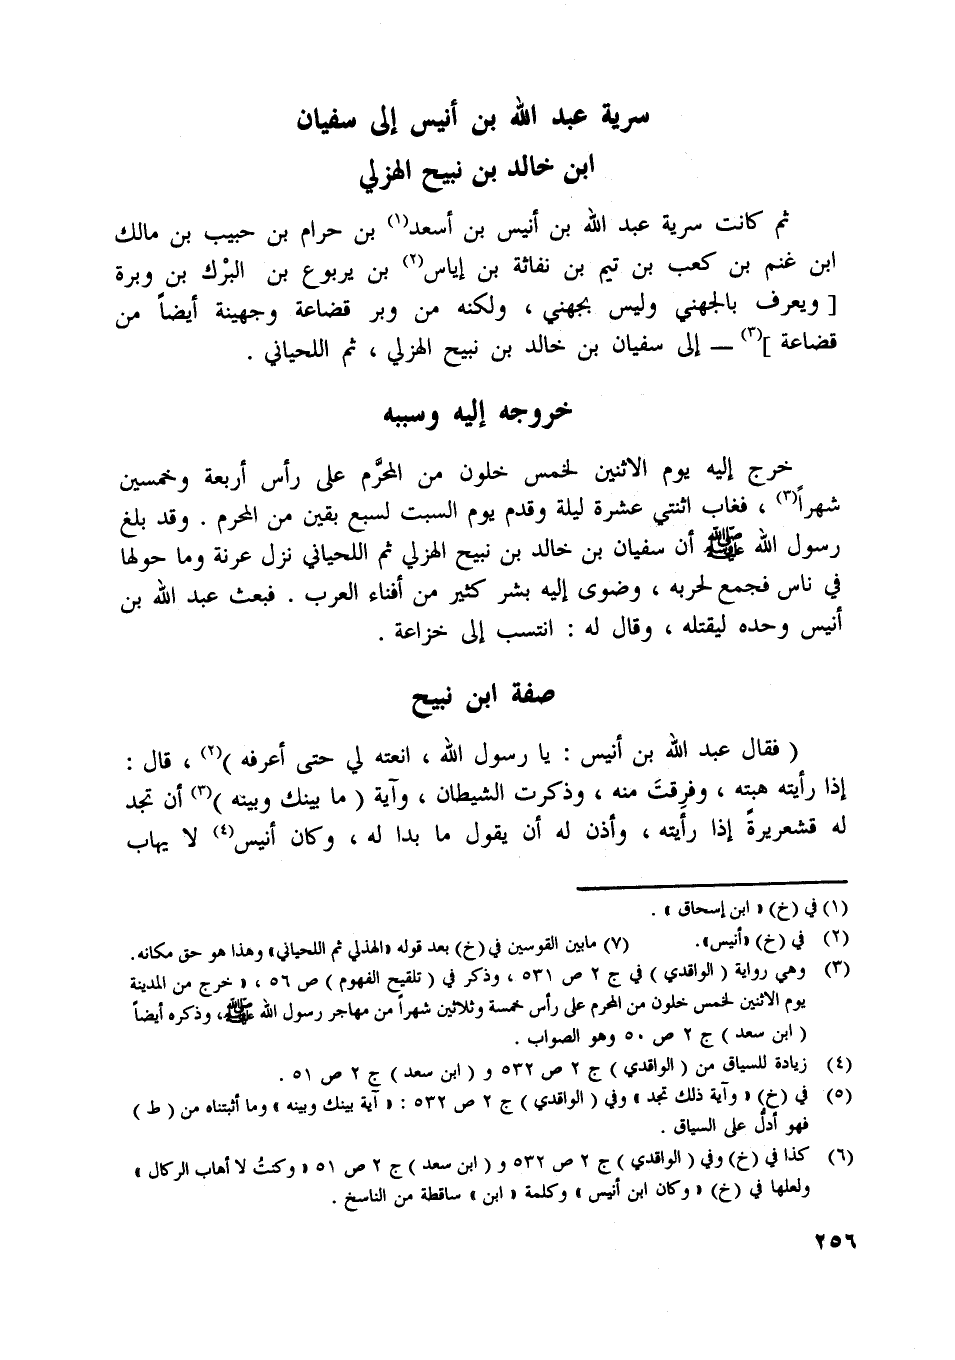 سرية عبد الله بن أنيس إلى سفيان
ابن خالد بن نبيح الهزلي
ثم كانت سرية عبد الله بن أنيس بن أسعد(١) بن حرام بن حبيب بن مالك
ابن غنم بن كعب بن تيم بن نفاثة بن إياس(٢) بن يربوع بن البرْك بن وبرة
[ ويعرف بالجهني وليس بجهني ، ولكنه من وبر قضاعة وجهينة أيضاً من
قضاعة ](٣) — إلى سفيان بن خالد بن نبيح الهزلي ، ثم اللحياني .
خروجه إليه وسببه
خرج إليه يوم الاثنين لخمس خلون من المحرَّم على رأس أربعة وخمسين
شهراً(٣) ، فغاب اثنتي عشرة ليلة وقدم يوم السبت لسبع بقين من المحرم . وقد بلغ
رسول الله ﷺ أن سفيان بن خالد بن نبيح الهزلي ثم اللحياني نزل عرنة وما حولها
في ناس فجمع لحربه ، وضوى إليه بشر كثير من أفناء العرب . فبعث عبد الله بن
أنيس وحده ليقتله ، وقال له : انتسب إلى خزاعة .
صفة ابن نبيح
( فقال عبد الله بن أنيس : يا رسول الله ، انعته لي حتى أعرفه )(٢) ، قال :
إذا رأيته هبته ، وفرِقتَ منه ، وذكرت الشيطان ، وآية ( ما بينك وبينه )(٣) أن تجد
له قشعريرةً إذا رأيته ، وأذن له أن يقول ما بدا له ، وكان أنيس(٤) لا يهاب
(١) في (خ) « ابن إسحاق » .
(٢) في (خ) «أنيس». (٧) مابين القوسين في (خ) بعد قوله «الهذلي ثم اللحياني» وهذا هو حق مكانه.
(٣) وهي رواية ( الواقدي ) في ج ٢ ص ٥٣١ ، وذكر في ( تلقيح الفهوم ) ص ٥٦ ، « خرج من المدينة
يوم الاثنين لخمس خلون من المحرم على رأس خمسة وثلاثين شهراً من مهاجر رسول الله ﷺ، وذكره أيضاً
( ابن سعد ) ج ٢ ص ٥٠ وهو الصواب .
(٤) زيادة للسياق من ( الواقدي ) ج ٢ ص ٥٣٢ و ( ابن سعد ) ج ٢ ص ٥١ .
(٥) في (خ) « وآية ذلك تجد » وفي ( الواقدي ) ج ٢ ص ٥٣٢ : « آية بينك وبينه » وما أثبتناه من ( ط )
فهو أدلُّ على السياق .
(٦) كذا في (خ) وفي ( الواقدي ) ج ٢ ص ٥٣٢ و ( ابن سعد ) ج ٢ ص ٥١ « وكنتُ لا أهاب الركال »
ولعلها في (خ) « وكان ابن أنيس » وكلمة « ابن » ساقطة من الناسخ .
٢٥٦